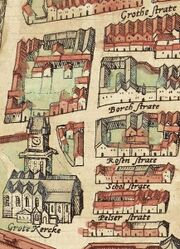 Grothe strate
Borch strate
Rosen strate
Schol strate
Pelser strate
Grote Kercke